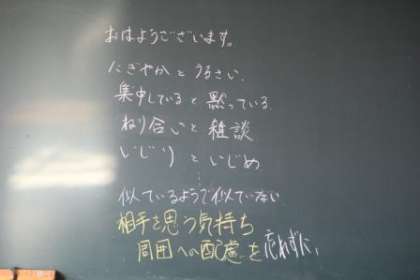 おはようございます。
にぎやかとうるさい
集中していると黙っている
ねり合いと雑談
いじりといじめ
⋮
似ているようで似ていない
相手を思う気持ち
周囲への配慮を忘れずに